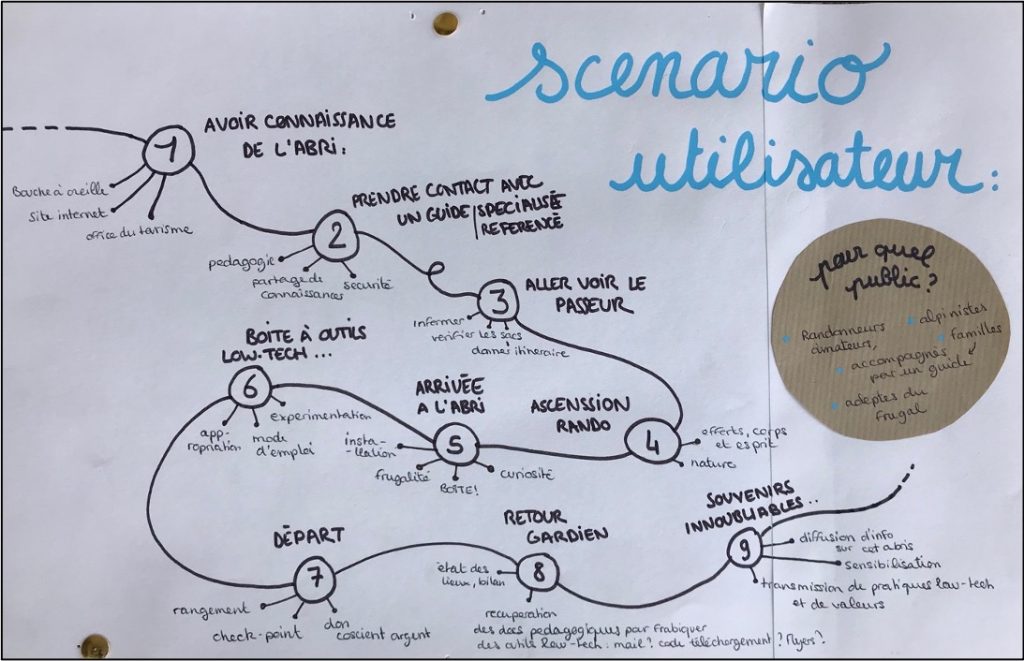 scenario
utilisateur:
1
AVOIR CONNAISSANCE
DE L'ABRI:
Bouche à oreille
site internet
office du tourisme
2
PRENDRE CONTACT AVEC
UN GUIDE | SPECIALISÉ
REFERENCÉ
pedagogie
partage de
connaissances
securité
3
ALLER VOIR LE
PASSEUR
informer
verifier les sacs
donner itineraire
pour quel
public?
Randonneurs
amateurs,
alpinistes
familles
accompagnés
par un guide
adeptes du
frugal
4
ASCENSSION
RANDO
efforts, corps
et esprit
nature
5
ARRIVÉE
A L'ABRI
insta-
llation
frugalité
BOÎTE!
curiosité
6
BOITE À OUTILS
LOW-TECH ...
app-
ropriation
mode
d'emploi
experimentation
7
DÉPART
rangement
check-point
don
coscient argent
8
RETOUR
GARDIEN
état des
lieux, bilan
recuperation
des docs pedagogiques par frabiquer
des outils low-tech: mail? code téléchargement? flyers?
9
SOUVENIRS
INNOUBLIABLES..
diffusion d'info
sur cet abris
sensibilisation
transmission de pratiques low-tech
et de valeurs